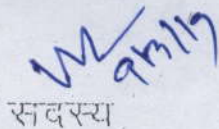 9/3/19
सदस्य